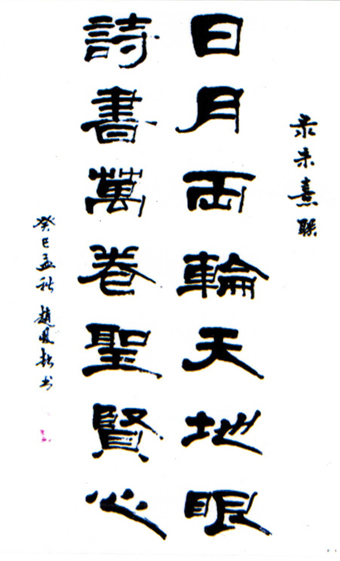 录朱熹联
日月両輪天地眼
詩書萬卷聖賢心
癸巳孟秋趙鳳